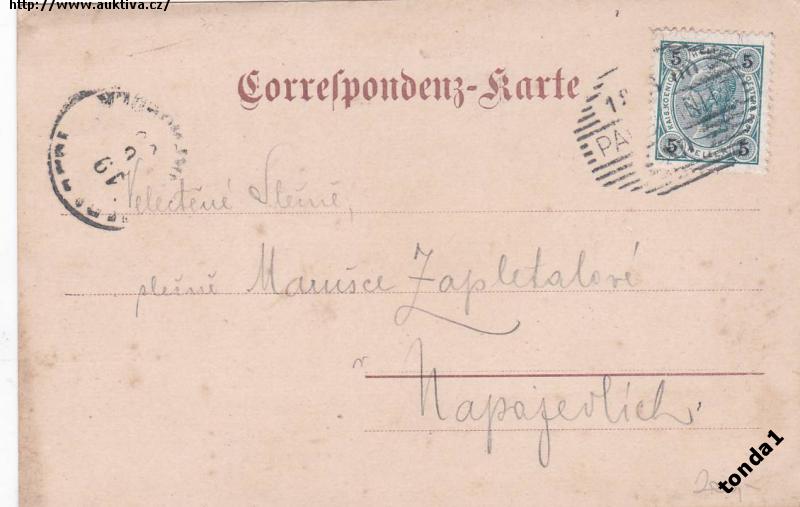 http://www.auktiva.cz/
Correspondenz-Karte
5 5
5 5
Velectěné Slečně,
slečně Marušce Zapletalové
v
Napajedlích
tonda1